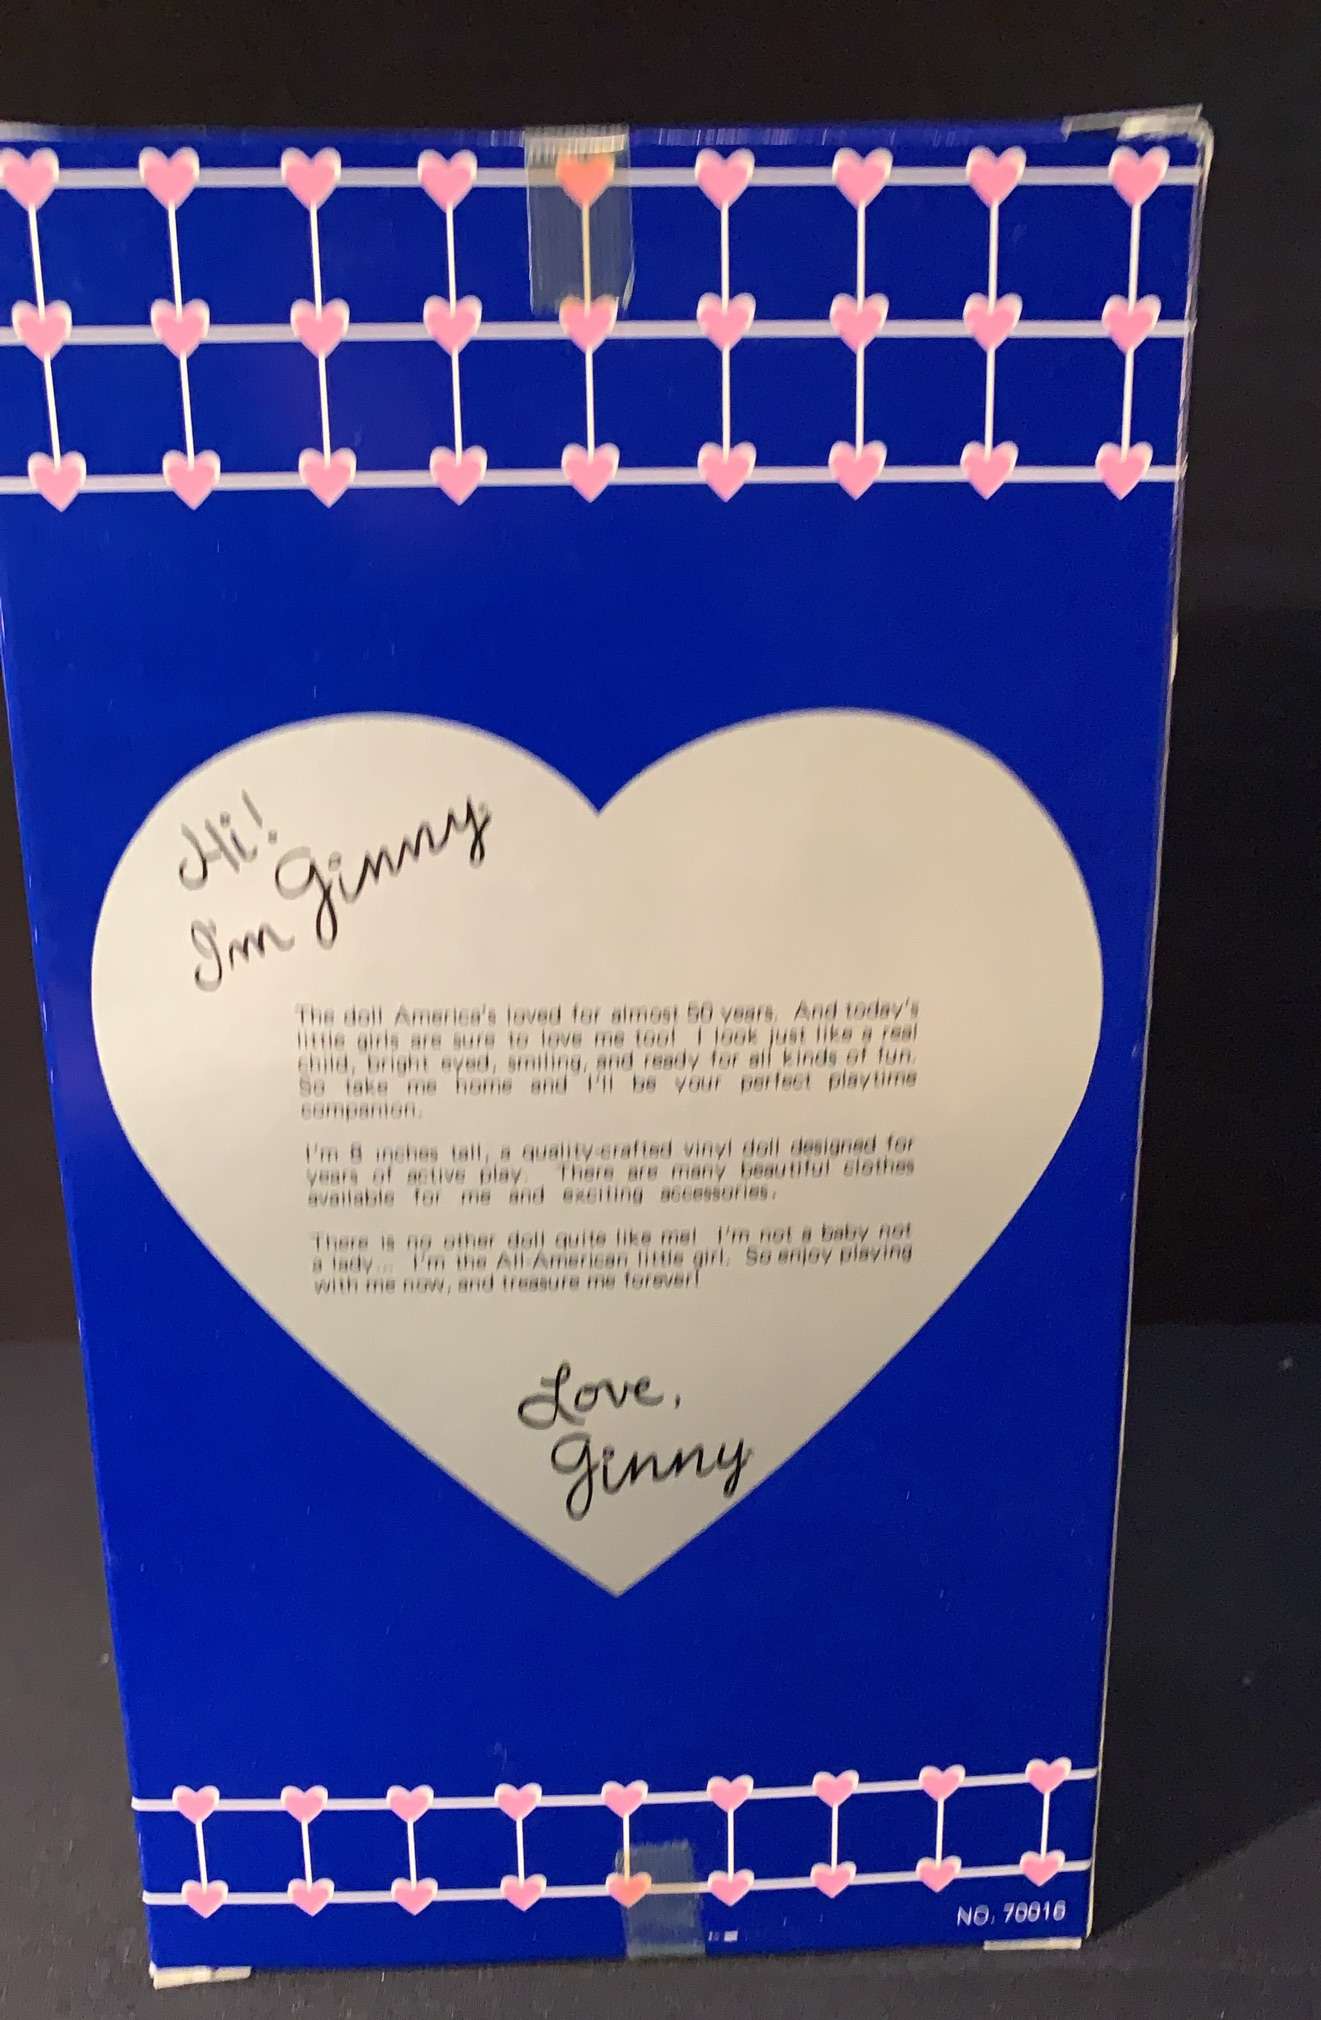 Hi!
I'm Ginny
The doll America's loved for almost 50 years. And today's
little girls are sure to love me too! I look just like a real
child, bright eyed, smiling, and ready for all kinds of fun.
So take me home and I'll be your perfect playtime
companion.
I'm 8 inches tall, a quality-crafted vinyl doll designed for
years of active play. There are many beautiful clothes
available for me and exciting accessories.
There is no other doll quite like me! I'm not a baby not
a lady... I'm the All-American little girl. So enjoy playing
with me now, and treasure me forever!
Love,
Ginny
NO. 70016